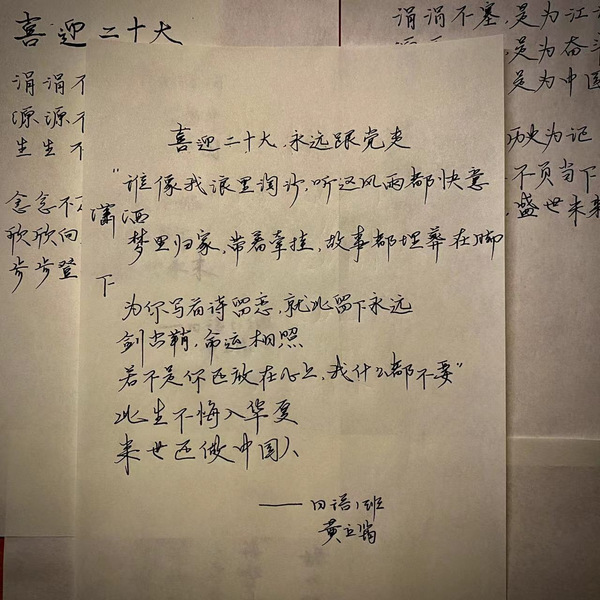 喜迎二十大
涓涓不
源源不
生生不
念念不
欣欣向
步步登
涓涓不塞,是为江
是为奋
是为中国
历史为记
不负当下
盛世未来
喜迎二十大,永远跟党走
"谁像我浪里淘沙,听这风雨都快意
潇洒
梦里归家,带着牵挂,故事都埋葬在脚
下
为你写首诗留恋,就此留下永远
剑出鞘,命运相照
若不是你还放在心上,我什么都不要"
此生不悔入华夏
来世还做中国人
——日语1班
黄立